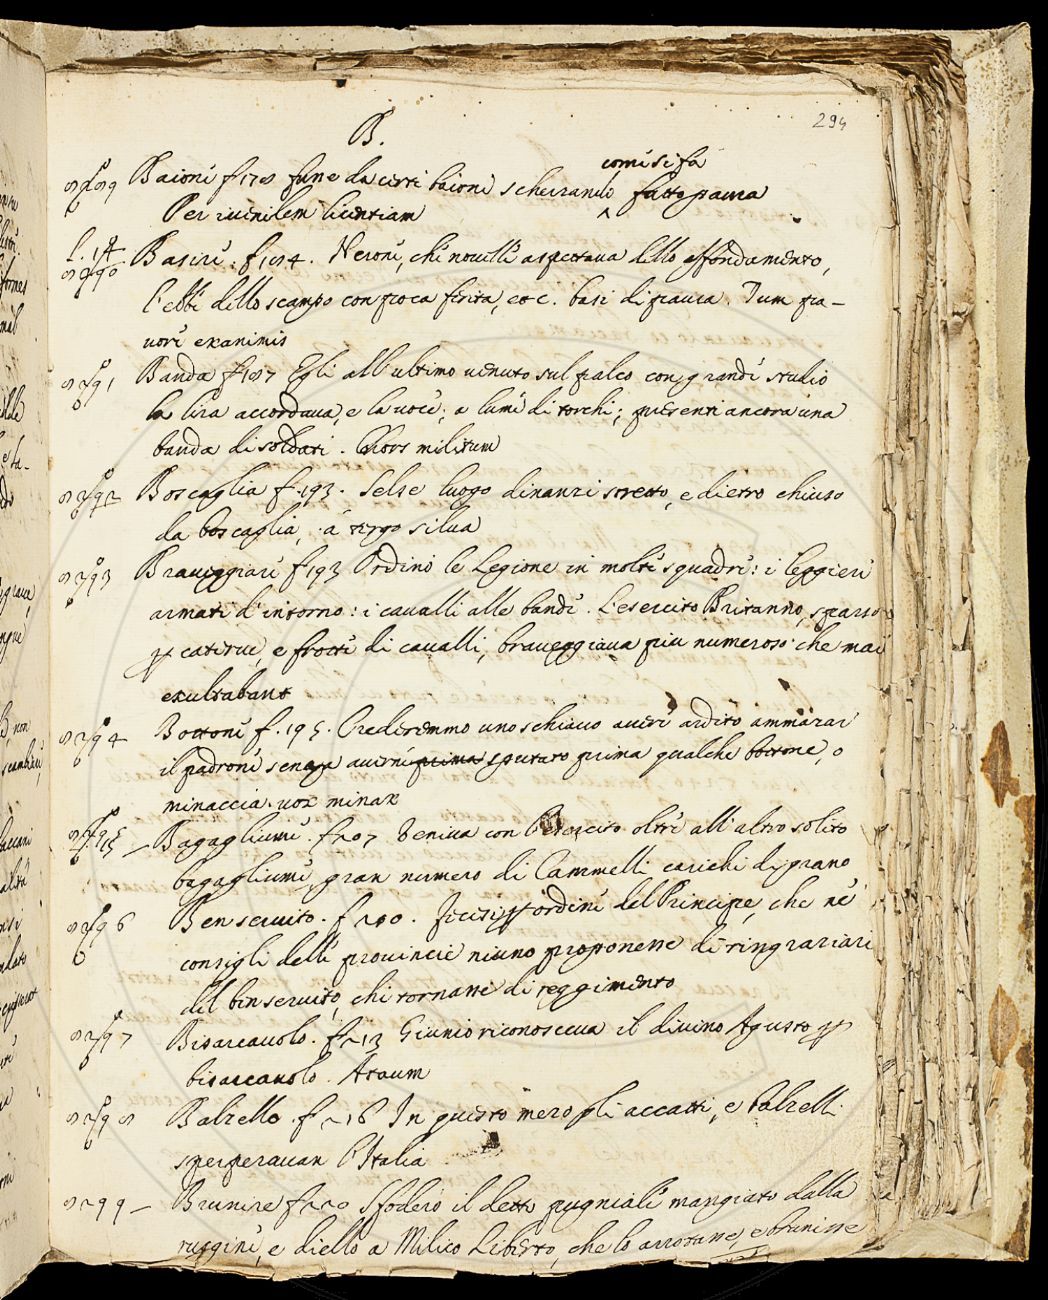 294
B.
Baioni f 178 fune da certi baioni scherzando comé si fa fatto paura
Per iuvenilem licentiam
Basire. f. 184. Nerone, che novelle aspettava dello affondamento,
l'ebbe dello scampo con poca ferita, etc. basì di paura. Tum pa-
vore exanimis
Banda f 187 Egli all'ultimo venuto sul palco con grande studio
la lira accordava, e la voce; a lumi di torchi; presente ancora una
banda di soldati. Cohors militum
Boscaglia f. 193. Scelse luogo dinanzi stretto, e dietro chiuso
da boscaglia, à tergo silva
Braveggiare f 193 Ordinò le Legione in molte squadre: i leggieri
armati d'intorno: i cavalli alle bande. L'esercito Britanno, sparso
p caterve, e frotte di cavalli, braveggiava piu numeroso che mai
exultabant
Bottone f. 195. Crederemmo uno schiavo avere ardito ammazar
il padrone senza averne prima sputato prima qualche bottone, o
minaccia. vox minax
Bagagliume. f 207 Veniva con l'esercito oltre all'altro solito
bagagliume, gran numero di Cammelli carichi di grano
Benservito. f 200. Fecesi p ordine del Principe, che ne'
consigli delle provincie niuno proponesse di ringraziare
del benservito, chi tornasse di reggimento
Bisarcavolo. f 213 Giunio riconosceva il divino Agusto p
bisarcavolo. Atavum
Balzello. f 216 In questo mezo gli accatti, e balzelli
sperperavan l'Italia
Brunire f 220 Sfoderò il detto pugniale mangiato dalla
ruggine, e diello a Milico Liberto, che lo arrotasse, e brunisse